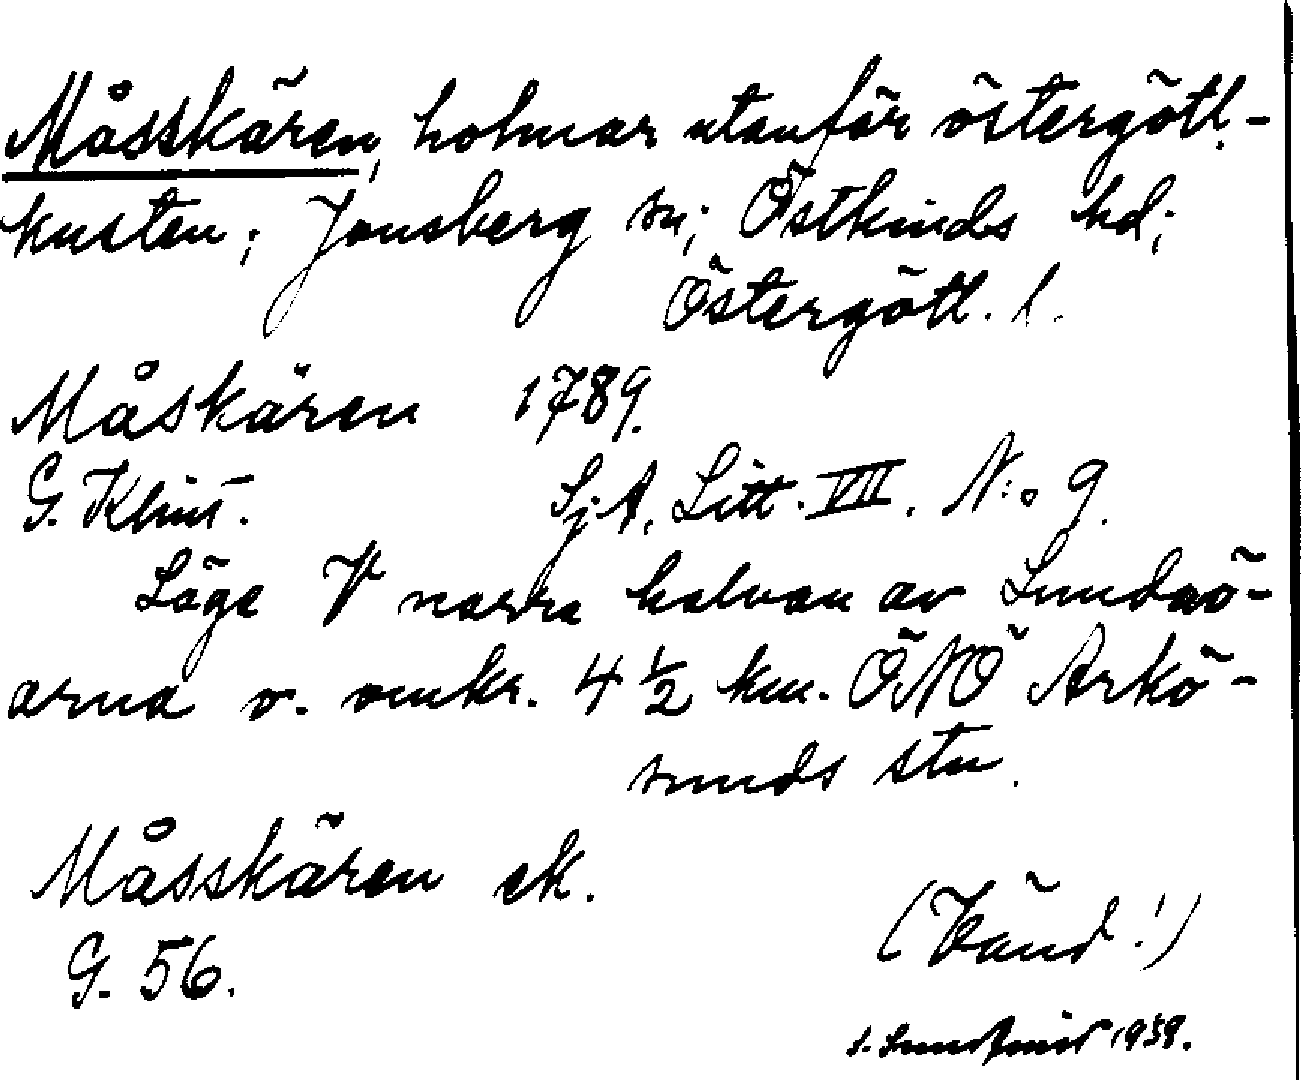 Måsskären, holmar utanför östergötl.-
kusten; Jonsberg sn; Östkinds hd;
Östergötl. l.
Måskären 1789.
G. Klint. Sj.A. Litt. VII. N:o 9.
Läge V norra halvan av Lundaö-
arna o. omkr. 4 1/2 km. ÖNÖ Arkö-
sunds stn.
Måsskären ek.
G. 56.
(Vänd!)
1939.